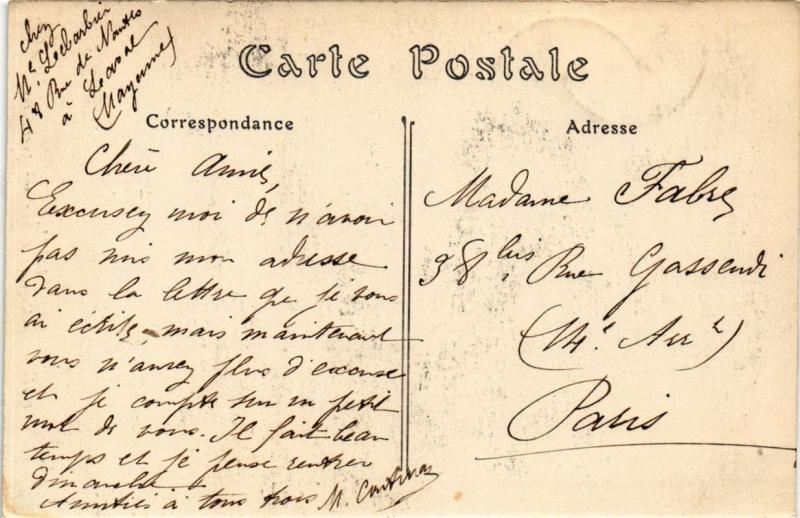 chez
Mr. Lebarbier
48 Rue de Nantes
à Laval
(Mayenne)
Carte Postale
Correspondance
Adresse
Chère Amie,
Excusez moi de n'avoir
pas mis mon adresse
dans la lettre que je vous
ai écrite, mais maintenant
vous n'aurez plus d'excuse
et je compte sur un petit
mot de vous. Il fait beau
temps et je pense rentrer
dimanche
Amitiés à tous trois M.
Madame Fabre
38 bis Rue Gassendi
(14e Arrt)
Paris